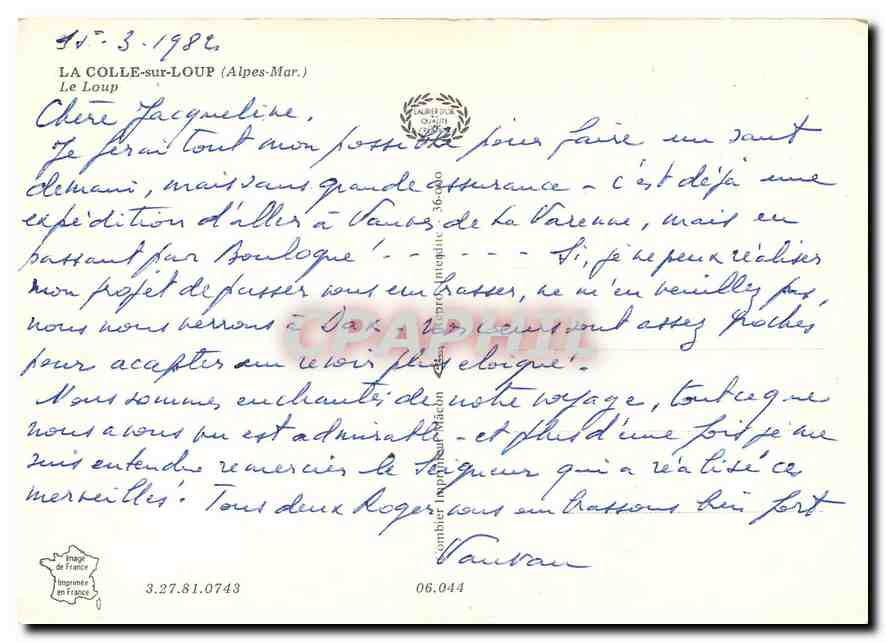 3-1982
LA COLLE-sur-LOUP (Alpes-Mar.)
Le Loup
LAURIER D'OR
QUALITÉ
Chère Jacqueline,
Je ferai tout mon possible pour faire un saut
demain, mais sans grande assurance - c'est déjà une
expédition d'aller à Vanves de La Varenne, mais en
passant par Boulogne! - - - - - Si, je ne peux réaliser
mon projet de passer vous embrasser, ne m'en veuillez pas,
nous nous verrons à Dax, nos sont assez proches
pour accepter un revoir plus éloigné.
Nous sommes enchantés de notre voyage, tout ce que
nous avons vu est admirable - et plus d'une fois je me
suis entendue remercier le Seigneur qui a réalisé ces
merveilles. Tous deux Roger vous embrassons bien fort
Vanvan
Combier Imprimeur Mâcon
Reprod. Interdite
CPAPHIL
Image
de France
Imprimée
en France
3.27.81.0743
06.044